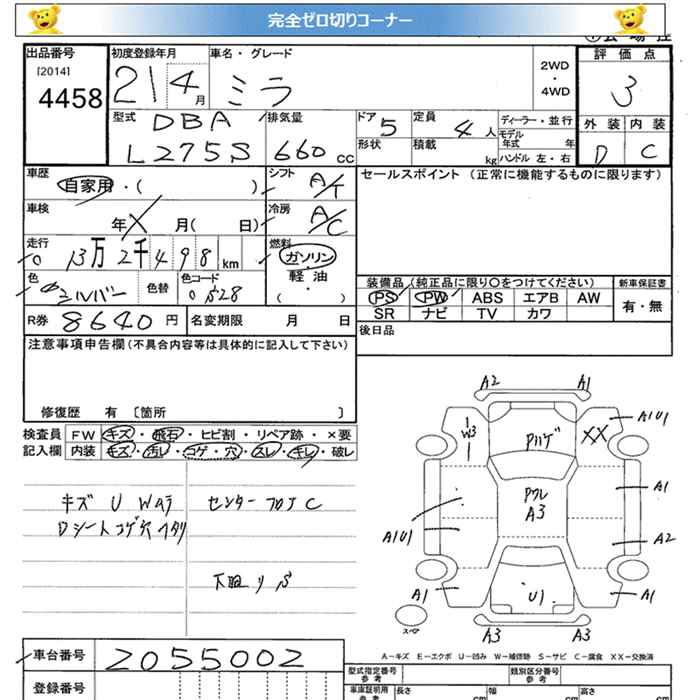 完全ゼロ切りコーナー
出品番号
[2014]
4458
初度登録年月
21 4月
車名・グレード
ミラ
2WD
・
4WD
評価点
3
外装 内装
D C
型式
DBA
L275S
排気量
660 CC
ドア
5
定員
4人
形状
積載
kg
ディーラー・並行
モデル年式 年
ハンドル 左・右
車歴
自家用・( )
車検
年 X 月( 日)
走行
13万2千498 km
色
シルバー
色替
色コード
S28
シフト
A/T
冷房
A/C
燃料
ガソリン
軽・油
( ・ )
セールスポイント (正常に機能するものに限ります)
装備品(純正品に限り○をつけてください)
PS PW ABS エアB AW
SR ナビ TV カワ
新車保証書
有・無
後日品
R券 8640 円
名変期限 月 日
注意事項申告欄(不具合内容等は具体的に記入して下さい)
修復歴 有 [箇所 ]
検査員 FW キズ・飛石・ヒビ割・リペア跡・×要
記入欄 内装 キズ・汚レ・コゲ・穴・スレ・キレ・破レ
キズ U Wカラ
Dシートコゲ穴ヘタリ
センターフロアC
下廻りS
A2 A1
W3
Pハゲ
XX
A1U1
Pクレ
A3
A1
A1U1
A2
A1
U1
A1
スペア
A3 A3
A-キズ E-エクボ U-凹み W-補修跡 S-サビ C-腐食 XX-交換済
車台番号 2055002
登録番号
型式指定番号
参考
類別区分番号
参考
車庫証明用
参考
長さ cm
幅 cm
高さ cm